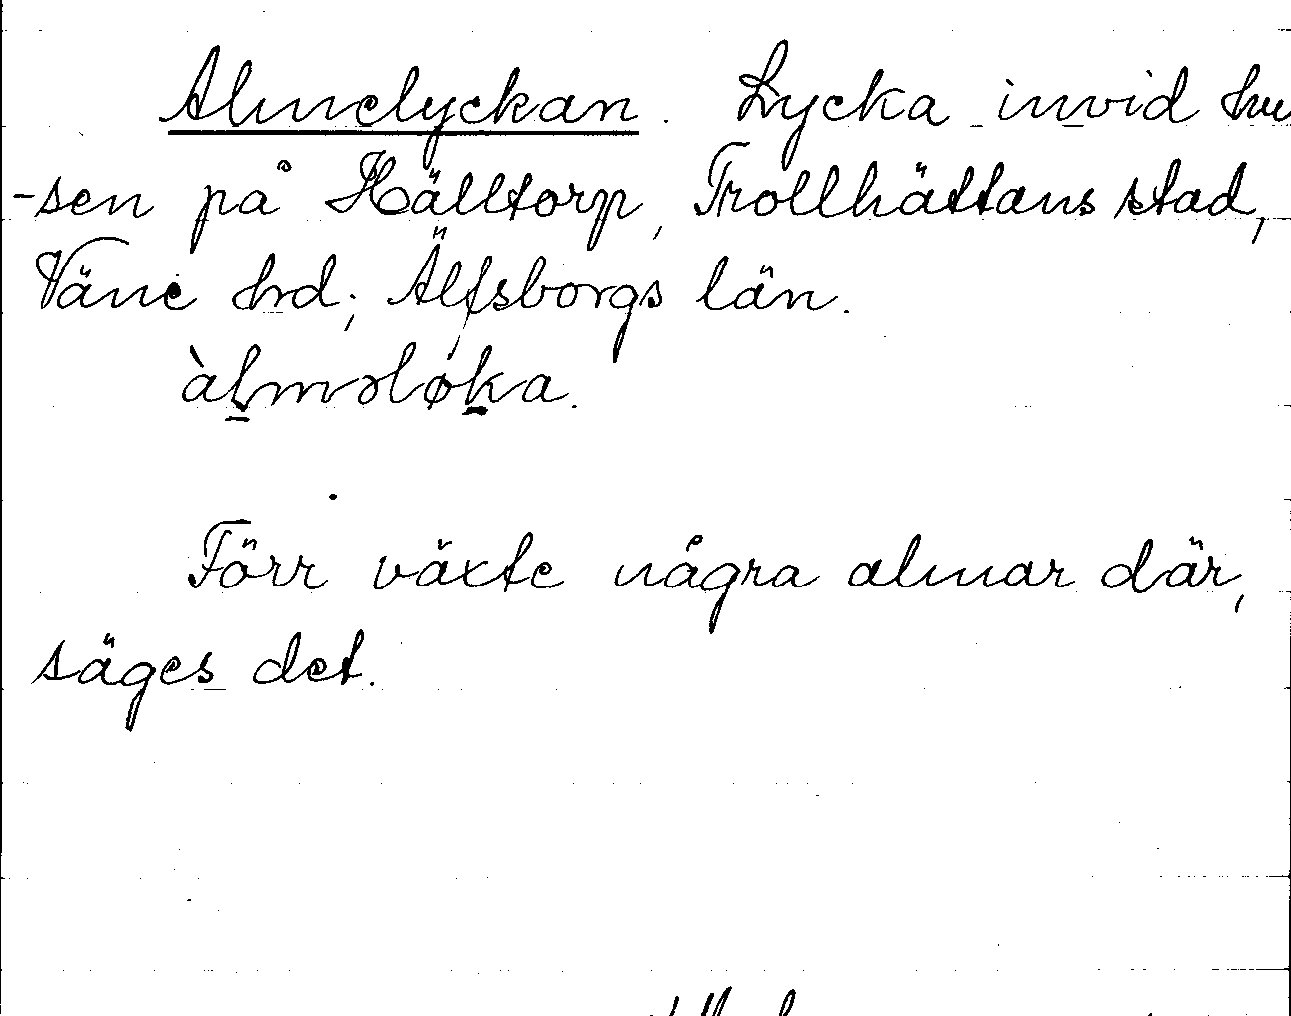 Almelyckan. Lycka invid hu
-sen på Hälltorp, Trollhättans stad,
Väne hd; Älfsborgs län.
àl̠məløk̠a.
Förr växte några almar där,
säges det.